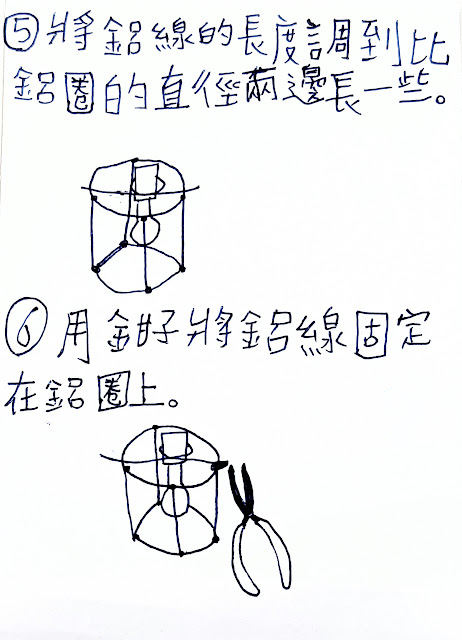 ⑤將鋁線的長度調到比
鋁圈的直徑兩邊長一些。
⑥用鉗子將鋁線固定
在鋁圈上。